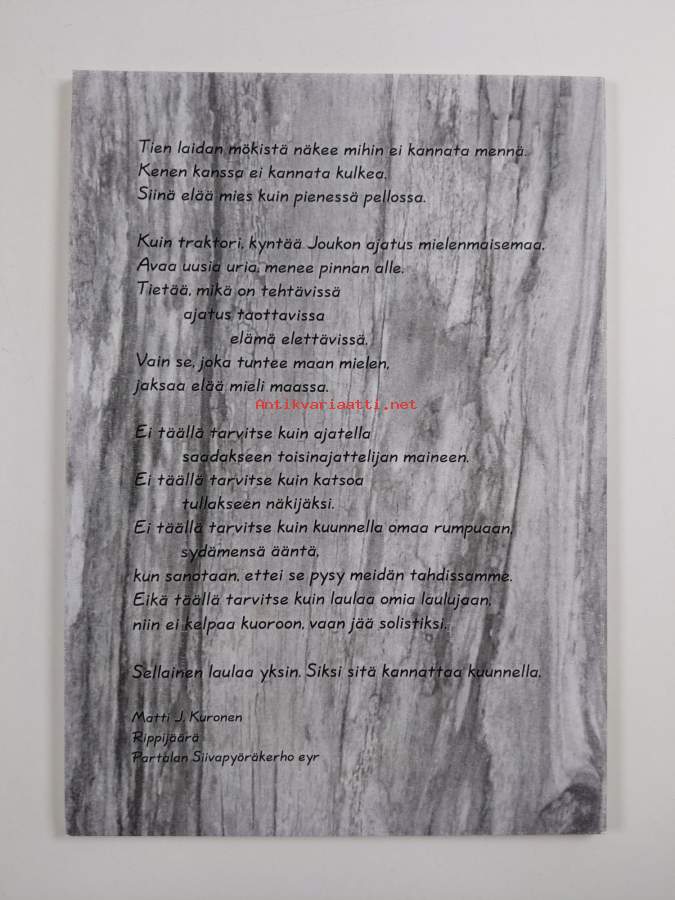 Tien laidan mökistä näkee mihin ei kannata mennä.
Kenen kanssa ei kannata kulkea.
Siinä elää mies kuin pienessä pellossa.
Kuin traktori, kyntää Joukon ajatus mielenmaisemaa.
Avaa uusia uria, menee pinnan alle.
Tietää, mikä on tehtävissä
ajatus taottavissa
elämä elettävissä.
Vain se, joka tuntee maan mielen,
jaksaa elää mieli maassa.
Antikvariaatti.net
Ei täällä tarvitse kuin ajatella
saadakseen toisinajattelijan maineen.
Ei täällä tarvitse kuin katsoa
tullakseen näkijäksi.
Ei täällä tarvitse kuin kuunnella omaa rumpuaan,
sydämensä ääntä,
kun sanotaan, ettei se pysy meidän tahdissamme.
Eikä täällä tarvitse kuin laulaa omia laulujaan,
niin ei kelpaa kuoroon, vaan jää solistiksi.
Sellainen laulaa yksin. Siksi sitä kannattaa kuunnella.
Matti J. Kuronen
Rippijäärä
Partalan Siivapyöräkerho eyr